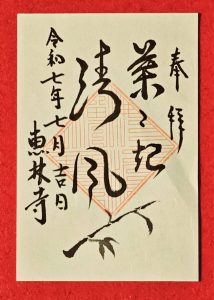 奉拝
葉々起
清風
令和七年七月吉日
惠林寺